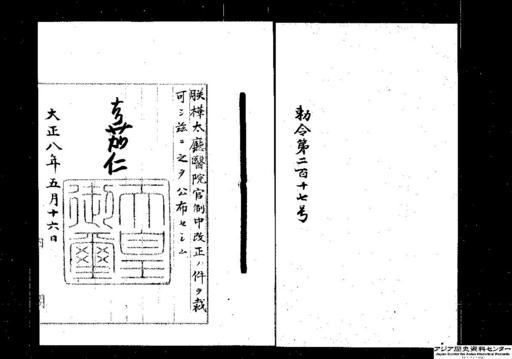 勅令第二百十七号
朕樺太廳醫院官制中改正ノ件ヲ裁
可シ茲ニ之ヲ公布セシム
嘉仁
大正八年五月十六日
天皇
御璽
内閣
アジア歴史資料センター
Japan Center for Asian Historical Records